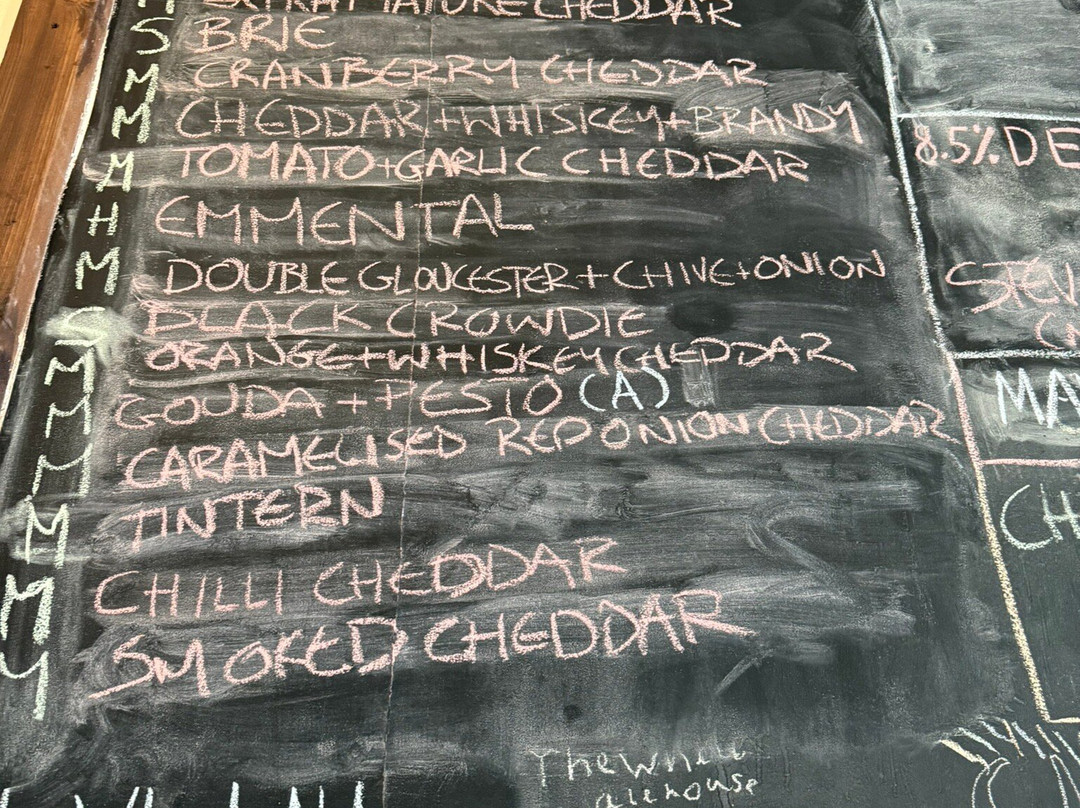 EXTRA MATURE CHEDDAR
S BRIE
M CRANBERRY CHEDDAR
M CHEDDAR+WHISKEY+BRANDY
M TOMATO+GARLIC CHEDDAR
H EMMENTAL
M DOUBLE GLOUCESTER+CHIVE+ONION
S BLACK CROWDIE
M ORANGE+WHISKEY CHEDDAR
M GOUDA + PESTO (A)
M CARAMELISED RED ONION CHEDDAR
M TINTERN
M CHILLI CHEDDAR
M SMOKED CHEDDAR
8.5% DE
STEV
MA
CH
The
alehouse